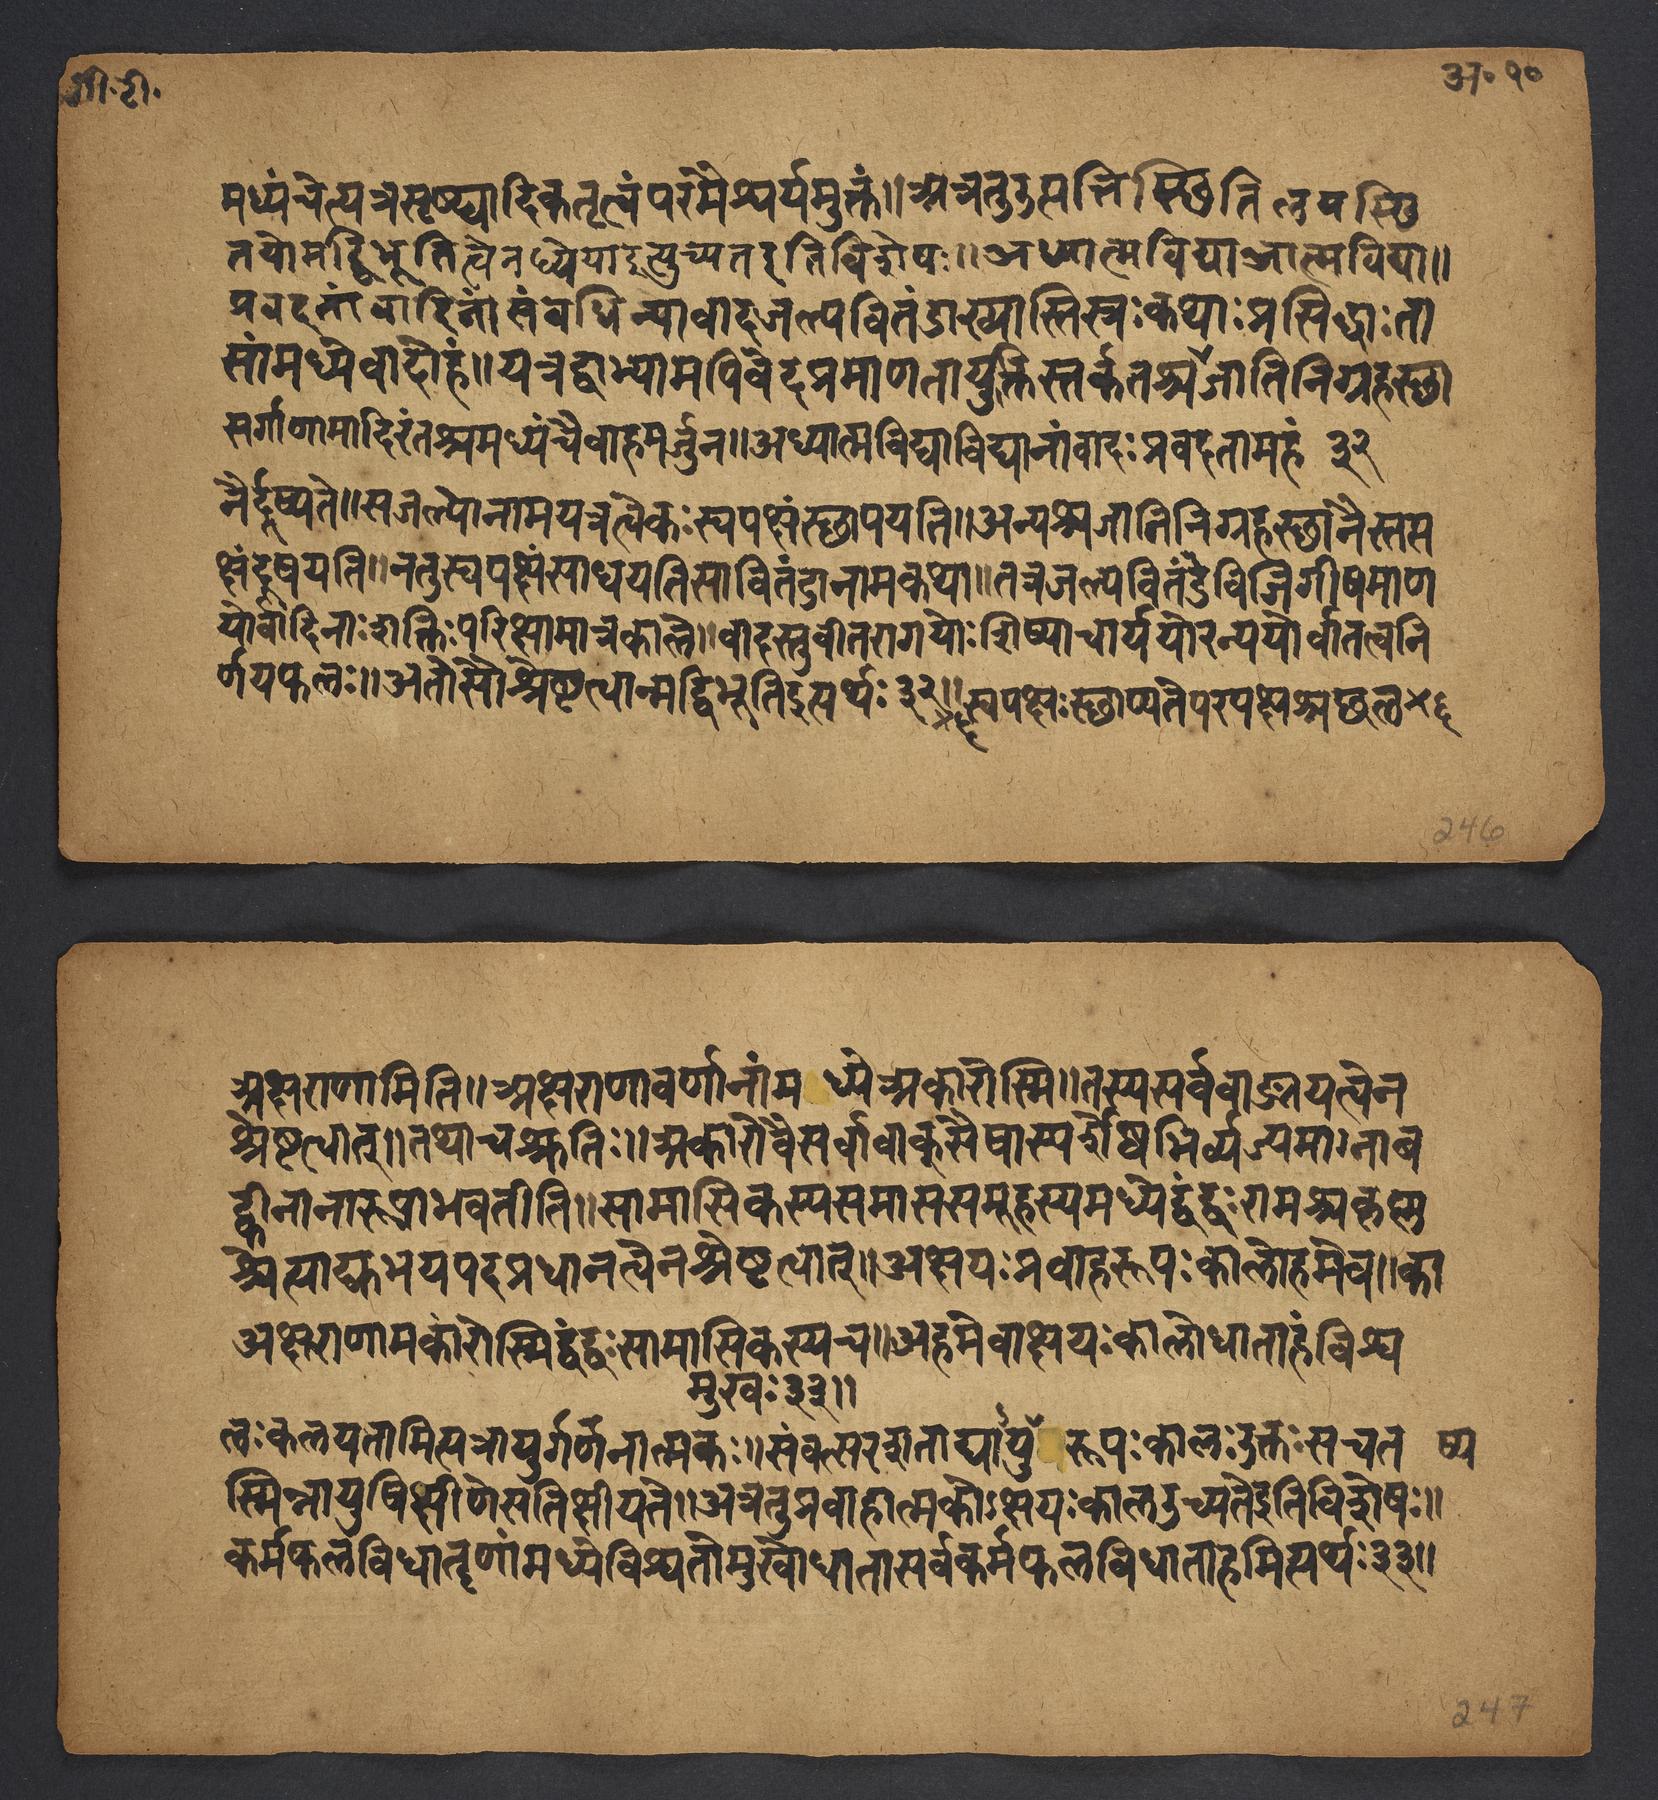 गी.टी.
अ॰ १०
मध्यंचेत्यत्रसृष्ट्यादिकतृत्वंपरमैश्वर्यमुक्तं॥अत्रतुउत्पत्तिस्थितिलयस्थि
तयोमद्विभूतित्वेनध्येयाइत्युच्यतइतिविशेषः॥अध्यात्मविद्याआत्मविद्या॥
प्रवदतांवादिनांसंबधिन्योवादजल्पवितंडाख्यास्तिस्त्रःकथाःप्रसिद्धाःता
सांमध्येवादोहं॥यत्रद्वाभ्यामपिवेदप्रमाणतायुक्तिस्तर्कतश्चजातिनिग्रहस्था
सर्गाणामादिरंतश्चमध्यंचैवाहमर्जुन॥अध्यात्मविद्याविद्यानांवादःप्रवदतामहं ३२
नैर्दूष्यते॥सजल्पोनामयत्रत्वेकःस्वपक्षंस्थापयति॥अन्यश्चजातिनिग्रहस्थानैस्तप
क्षंदूषयति॥नतुस्वपक्षंसाधयतिसावितंडानामकथा॥तत्रजल्पवितंडेविजिगीषमाण
योर्वादिनोःशक्तिःपरिक्षामात्रकाले॥वादस्तुवीतरागयोःशिष्याचार्ययोरन्ययोर्वातत्वनि
र्णयफलः॥अतोसौश्रेष्ठत्वान्मद्विभूतिइत्यर्थः३२॥स्वपक्षःस्थाप्यतेपरपक्षश्चछल×६
246
अक्षराणामिति॥अक्षराणावर्णानांमध्येअकारोस्मि॥तस्यसर्ववाङ्मयत्वेन
श्रेष्ठत्वात्॥तथाचश्रुतिः॥अकारोवैसर्वावाक्सैषास्पर्शोष्मभिर्व्यज्यमानाब
ह्वीनानारूपाभवतीति॥सामासिकस्यसमाससमूहस्यमध्येद्वंद्वःरामश्चकृष्ण
श्चेत्याद्युभयपदप्रधानत्वेनश्रेष्ठत्वात्॥अक्षयःप्रवाहरूपःकालोहमेव॥का
अक्षराणामकारोस्मिद्वंद्वःसामासिकस्यच॥अहमेवाक्षयःकालोधाताहंविश्व
मुखः३३॥
लःकलयतामित्यत्रायुर्गणनात्मकः॥संवत्सरशताद्यायुरूपःकालःउक्तःसचत ष्य
स्मिन्नायुषिक्षीणेसतिक्षीयते॥अत्रतुप्रवाहात्मकोऽक्षयःकालउच्यतेइतिविशेषः॥
कर्मफलविधातृणांमध्येविश्वतोमुखोधातासर्वकर्मफलविधाताहमित्यर्थः३३॥
247